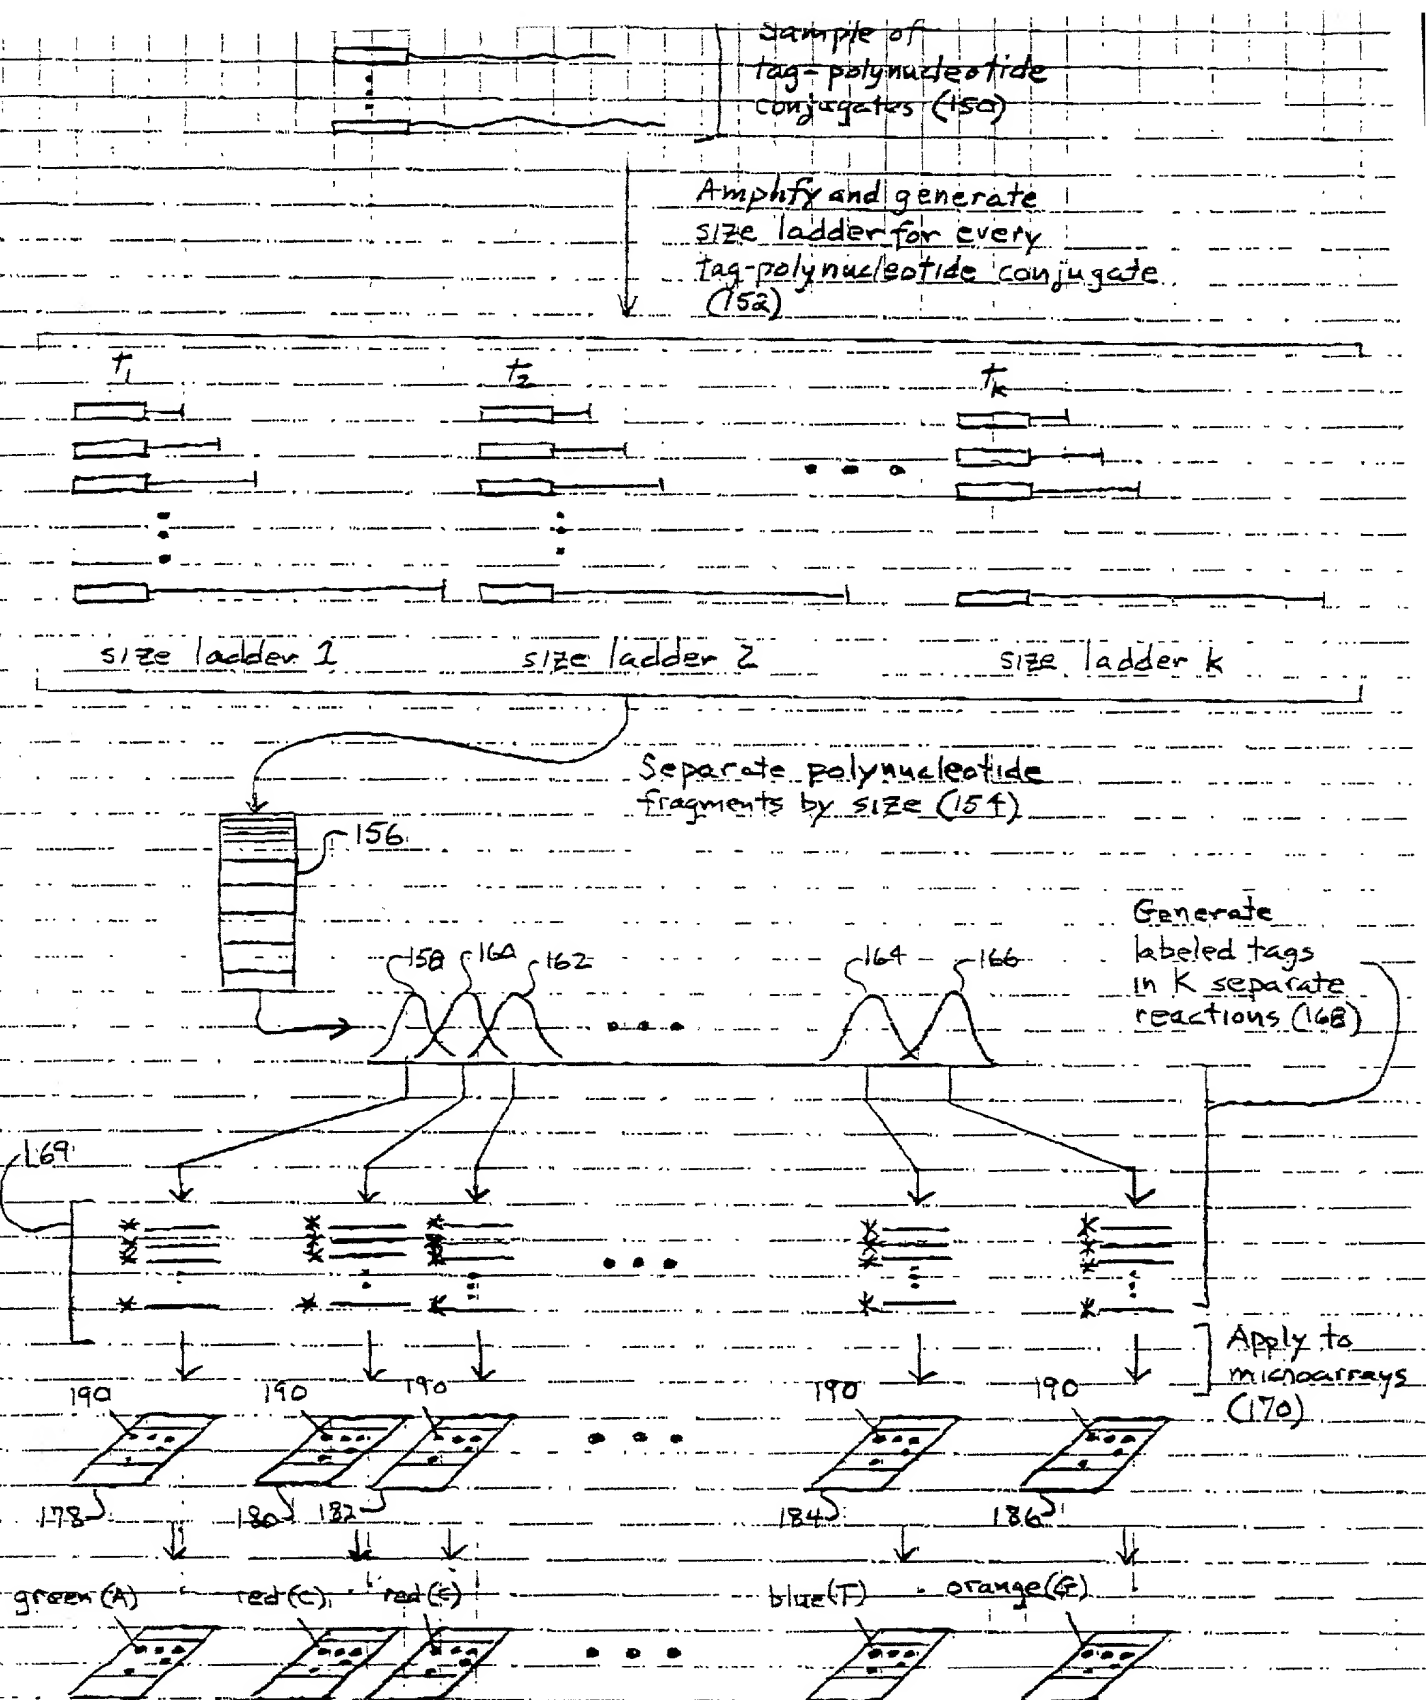 Sample of
tag-polynucleotide
conjugates (150)
Amplify and generate
size ladder for every
tag-polynucleotide conjugate
(152)
t1
t2
tk
size ladder 1
size ladder 2
size ladder k
Separate polynucleotide
fragments by size (154)
156
158
160
162
164
166
Generate
labeled tags
in K separate
reactions (168)
169
Apply to
microarrays
(170)
190
190
190
190
190
178
180
182
184
186
green (A)
red (C)
red (C)
blue (T)
orange (G)